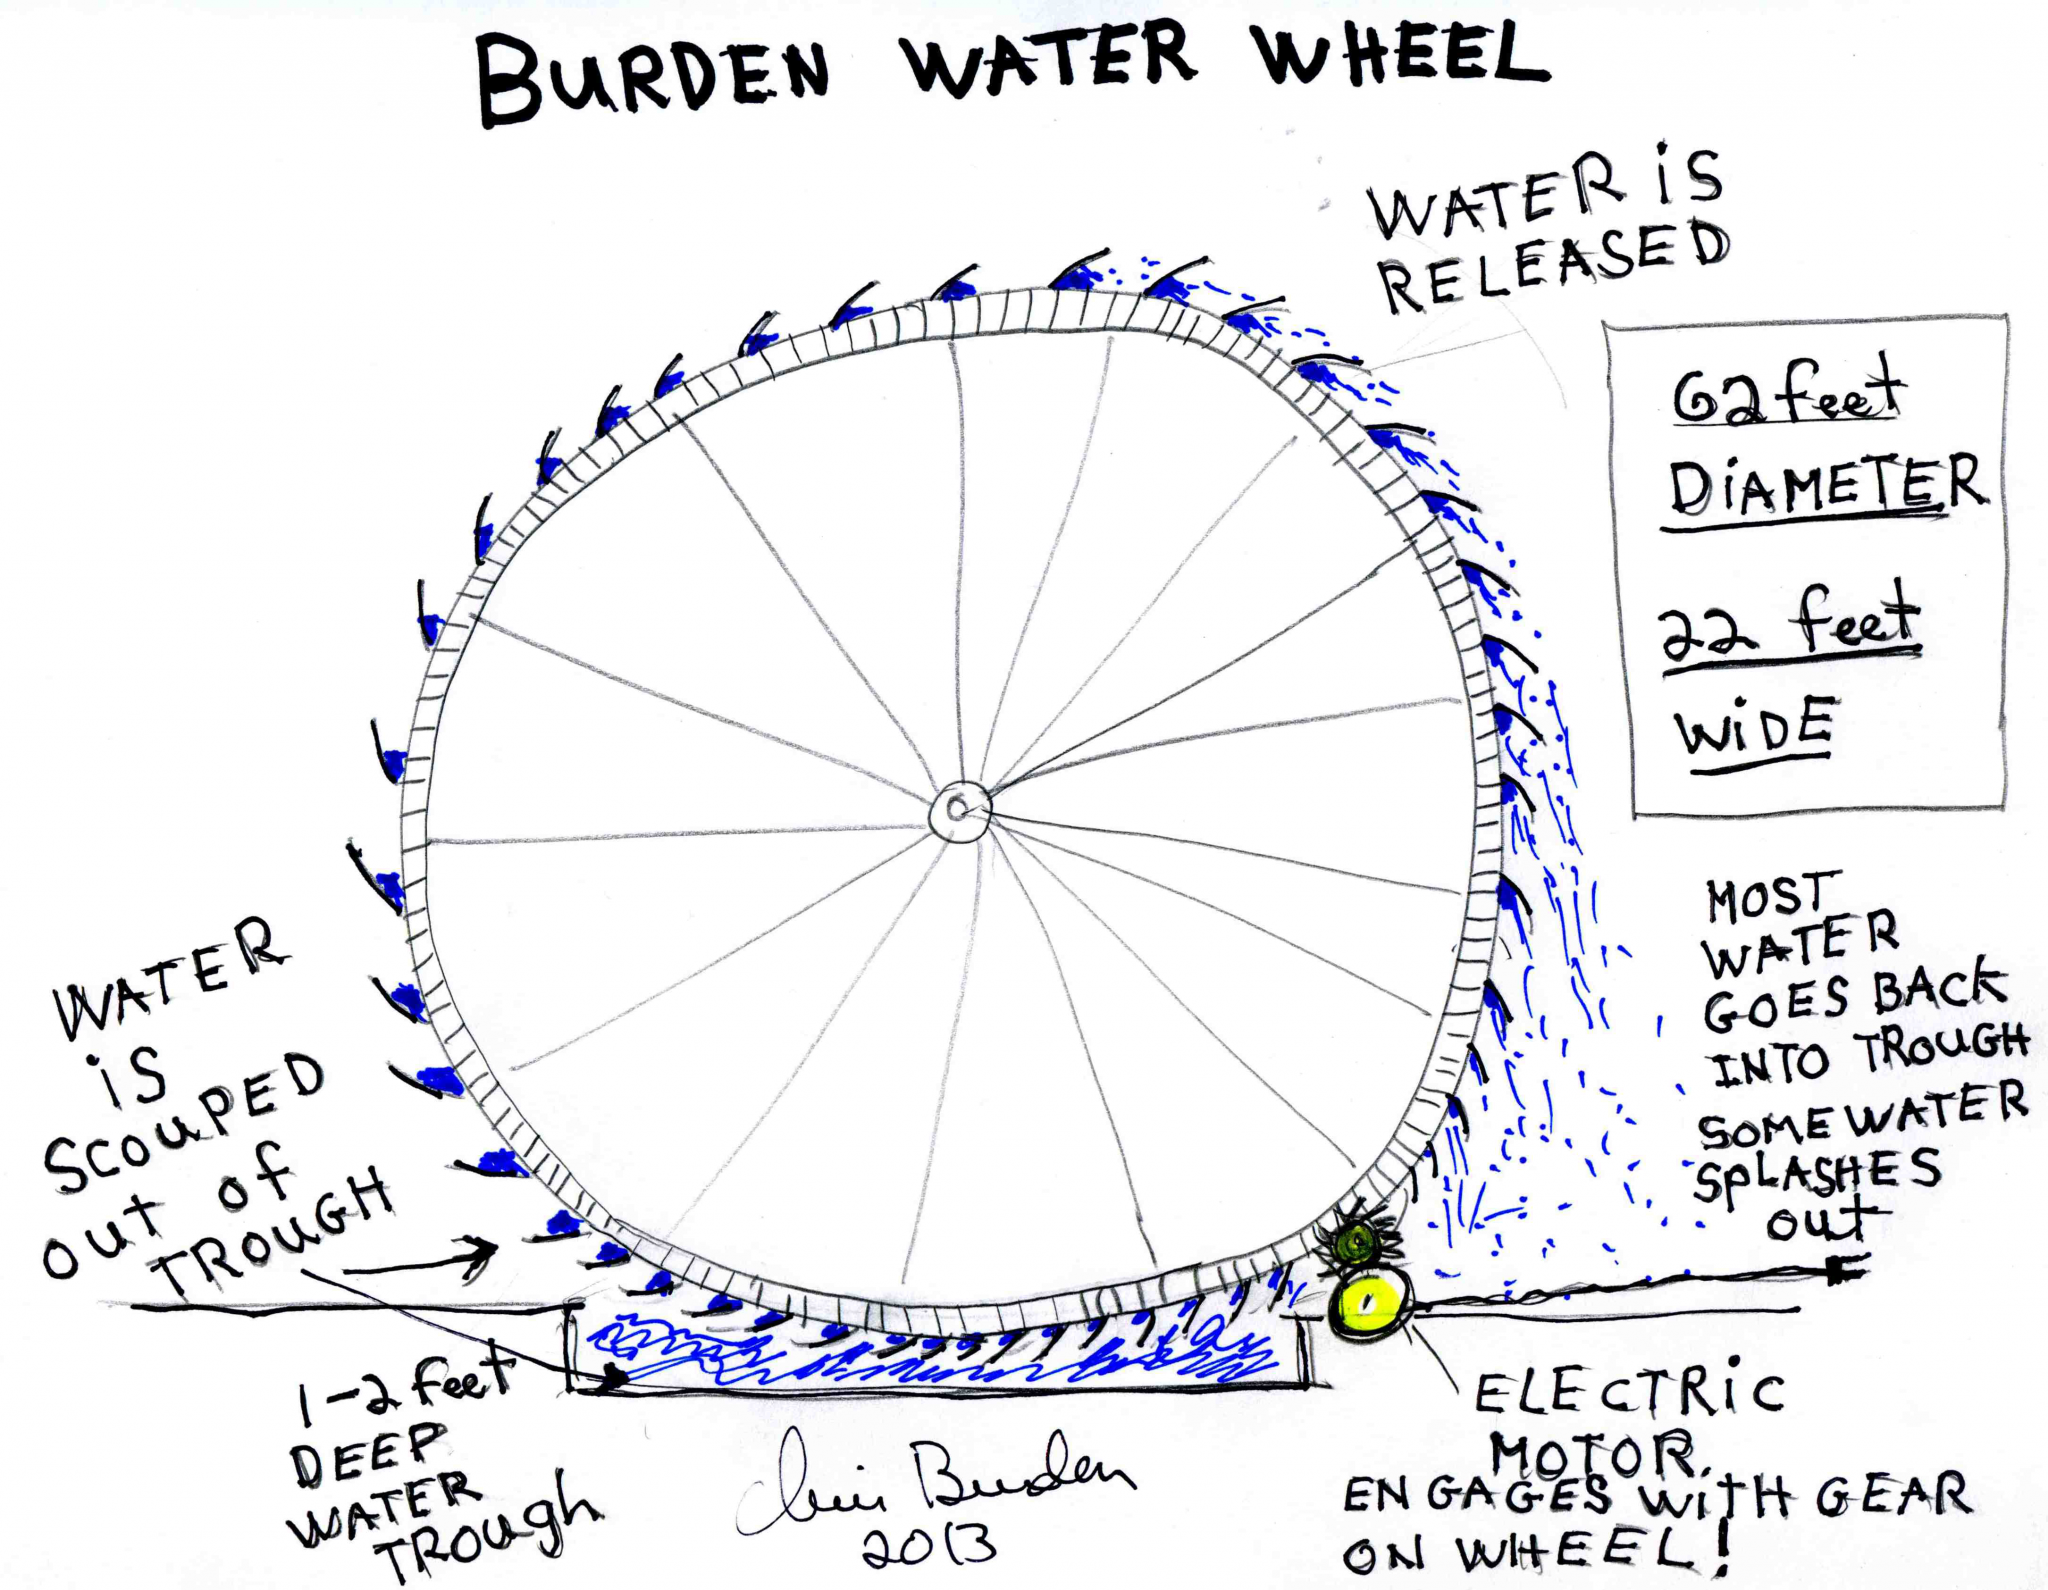 BURDEN WATER WHEEL
WATER iS
RELEASED
62 feet
DiAMETER
22 feet
WiDE
WATER
iS
SCOUPED
out of
TROUGH
MOST
WATER
GOES BACK
INTO TROUGH
SOME WATER
SPLASHES
out
1-2 feet
DEEP
WATER
TROugh
ELECTRiC
MOTOR
ENGAGES WiTH GEAR
ON WHEEL!
Chris Burden
2013